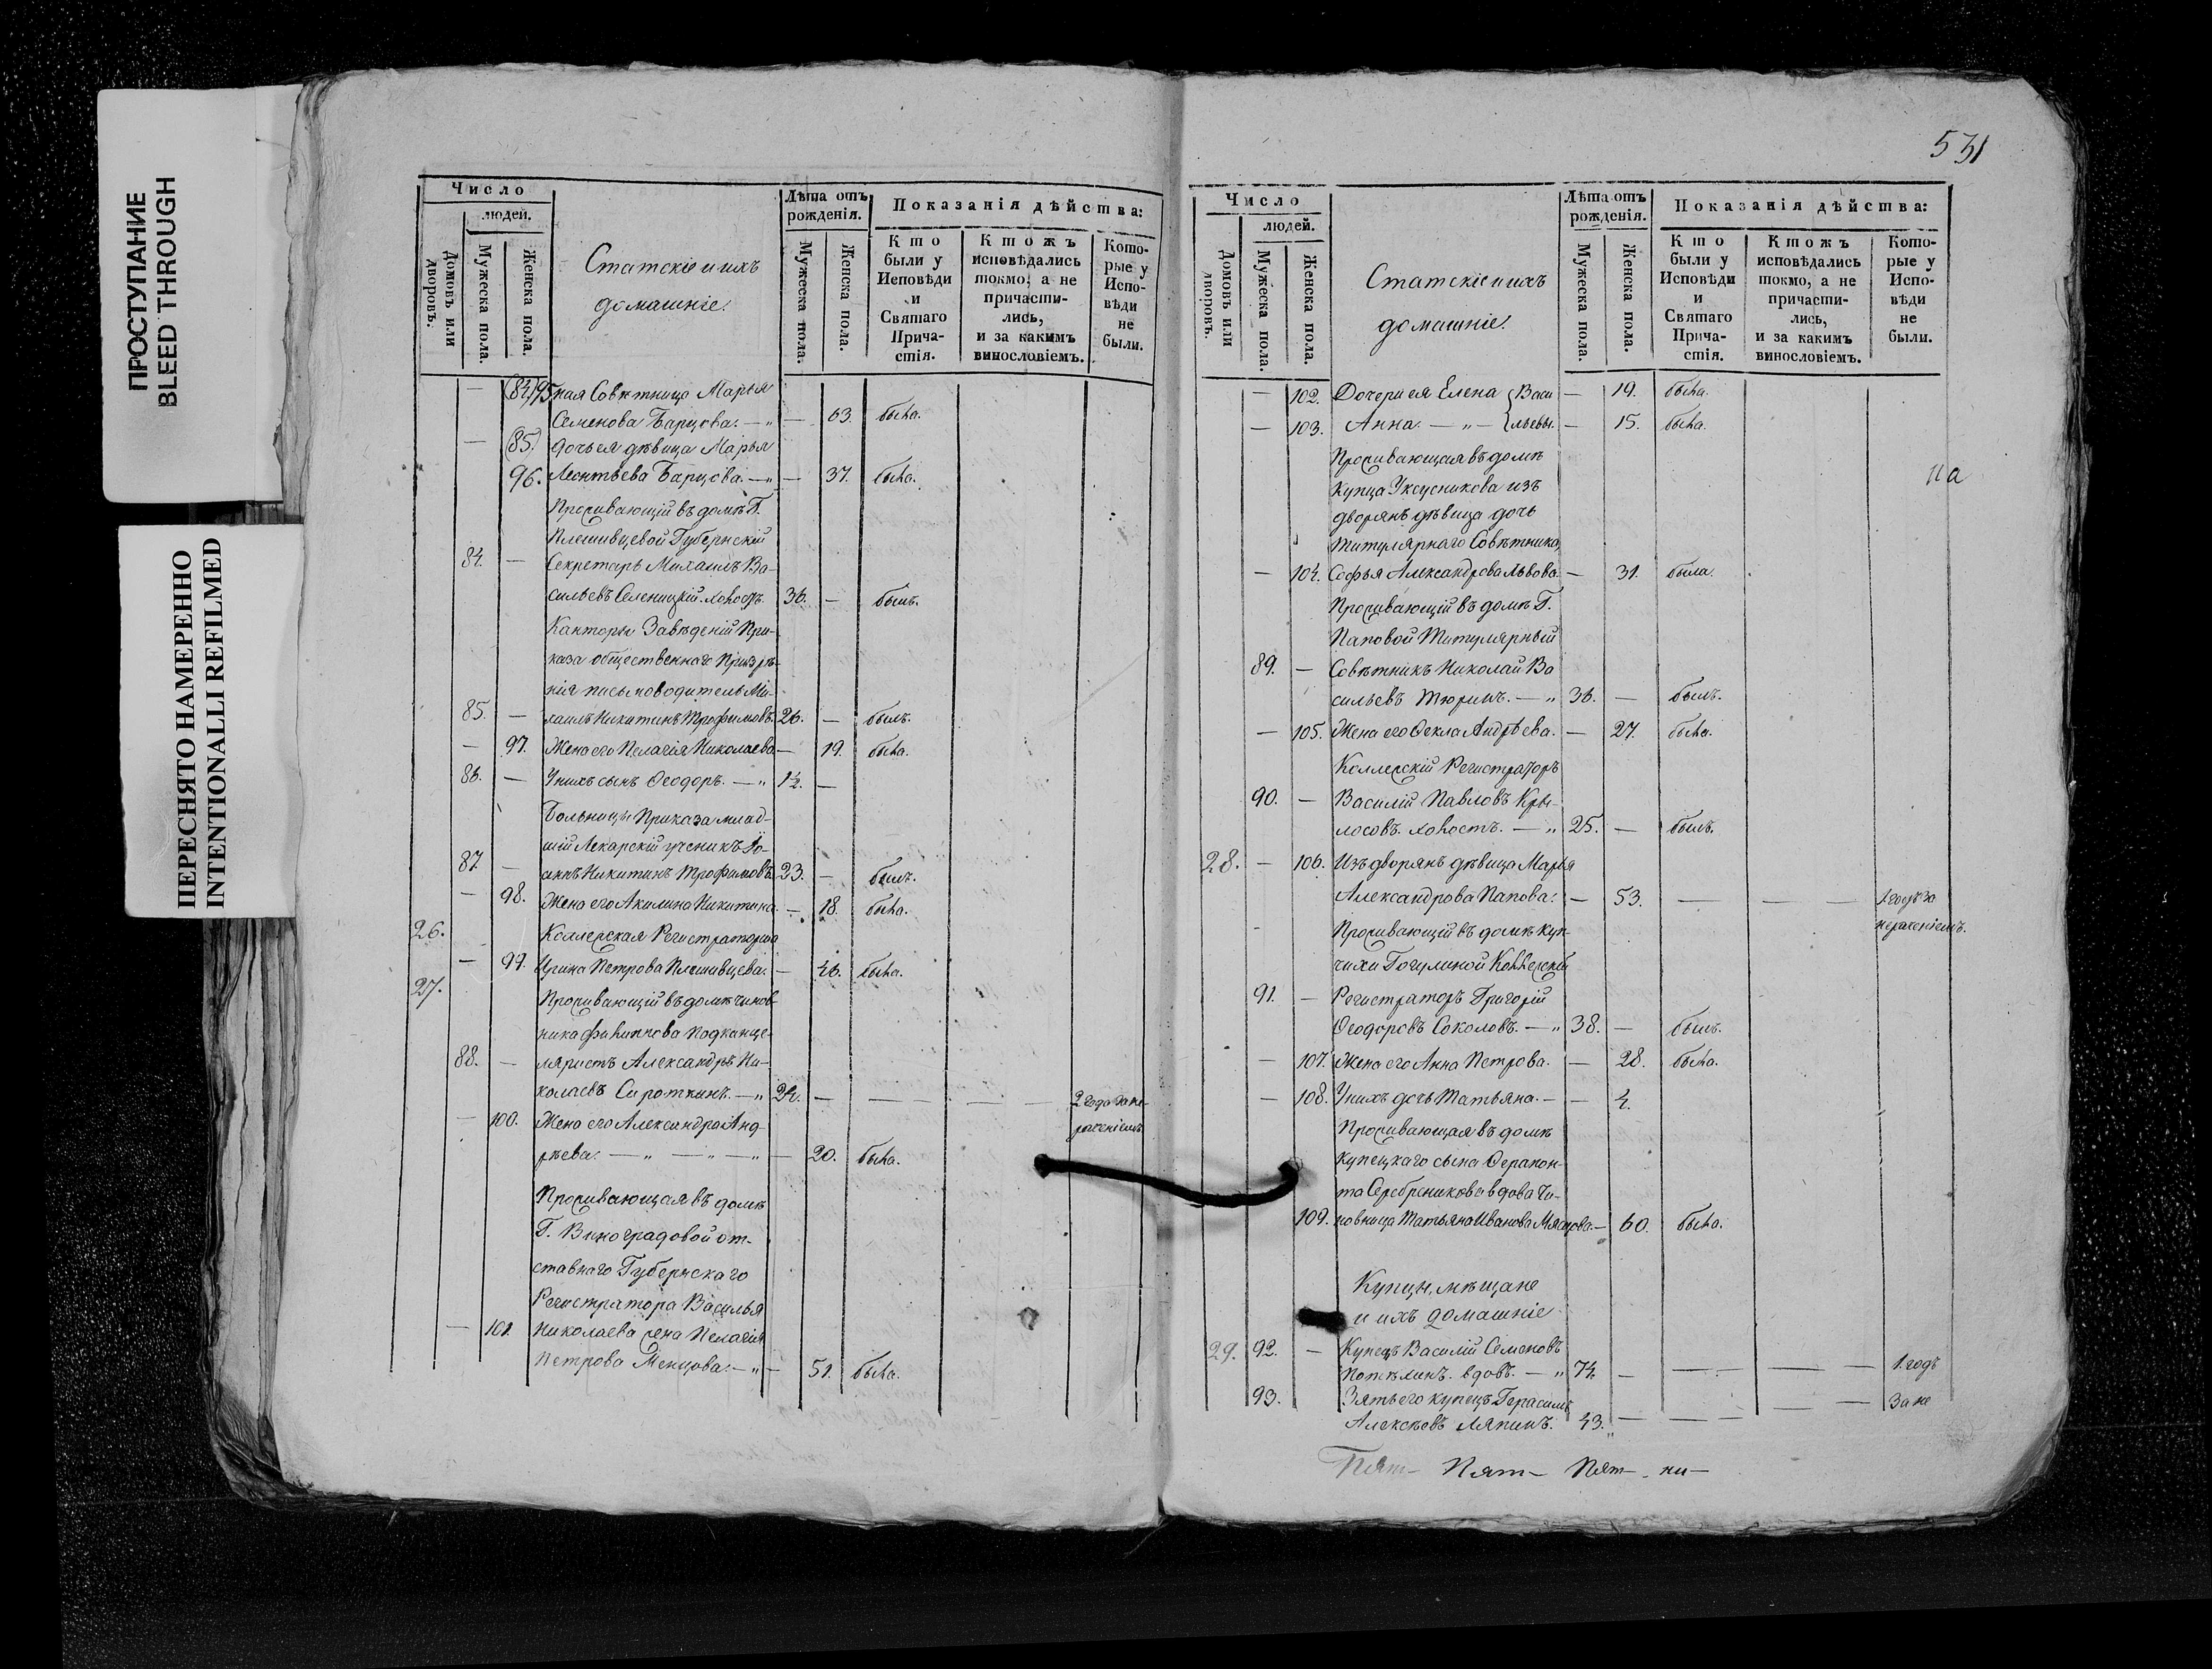 ПРОСТУПАНИЕ
BLEED THROUGH
ПЕРЕСНЯТО НАМЕРЕННО
INTENTIONALLI REFILMED
Число
людей.
Домовъ или дворовъ.
Мужеска пола.
Женска пола.
Статскіе и ихъ
домашніе.
Лѣта отъ рожденія.
Мужеска пола.
Женска пола.
Показанія дѣйства:
Кто были у Исповѣди и Святаго Причастія.
Ктожъ исповѣдались токмо, а не причастились, и за какимъ винословіемъ.
Которые у Исповѣди не были.
— (84) 95 ная Совѣтница Марья
Семенова Барцова. — „ — 63. была.
— (85) дочь ея дѣвица Марья
96. Леонтьева Барцова. — „ — 37. была.
Проживающій въ домѣ Г.
Плешивцевой Губернскій
84. — Секретарь Михаилъ Ва-
сильевъ Селеницкій. холостъ 36. — былъ.
Канторы Заведеній При-
каза общественнаго Призрѣ-
нія письмоводитель Ми-
85. — хаилъ Никитинъ Трофимовъ. 26. — былъ.
— 97. Жена его Пелагія Николаева — 19. была.
86. — У нихъ сынъ Ѳеодоръ. — „ 1½. —
Больницы Приказа млад-
шій Лекарскій ученикъ Іо-
87. — аннъ Никитинъ Трофимовъ. 23. — былъ.
— 98. Жена его Акилина Никитина. — 18. была.
26. Коллежская Регистраторша
— 99. Ирина Петрова Плешивцева. — 46. была.
27. Проживающій въ домѣ чинов-
ника Филиппова Подканце-
88. — ляристъ Александръ Ни-
колаевъ Сироткинъ. — „ 24. — — — — 2 года за не-
— 100. Жена его Александра Анд- раченіемъ
рѣева. — „ — „ — „ — 20. была.
Проживающая въ домѣ
Г. Виноградовой от-
ставнаго Губернскаго
Регистратора Василья
— 101. Николаева жена Пелагія
Петрова Менцова. — „ — 51. была.
531
Число
людей.
Домовъ или дворовъ.
Мужеска пола.
Женска пола.
Статскіе и ихъ
домашніе.
Лѣта отъ рожденія.
Мужеска пола.
Женска пола.
Показанія дѣйства:
Кто были у Исповѣди и Святаго Причастія.
Ктожъ исповѣдались токмо, а не причастились, и за какимъ винословіемъ.
Которые у Исповѣди не были.
— 102. Дочери ея Елена { Васи — 19. была.
— 103. Анна. — „ — { льевы. — 15. была.
Проживающая въ домѣ
Купца Уксусникова изъ
дворянъ дѣвица дочь
Титулярнаго Совѣтника,
— 104. Софья Александрова Львова. — 31. была.
Проживающій въ домѣ Г.
Паповой Титулярный
89. — Совѣтникъ Николай Ва
сильевъ Тюринъ. — „ 36. — былъ.
— 105. Жена его Ѳекла Андрѣева. — 27. была.
Коллежскій Регистраторъ
90. — Василій Павловъ Кры-
лосовъ. холостъ. — „ 25. — былъ.
28. — 106. Изъ дворянъ дѣвица Марья
Александрова Папова. — 53. — — — 1. годъ за
Проживающій въ домѣ куп- нераченіемъ.
чихи Гогулиной Коллежскій
91. — Регистраторъ Григорій
Ѳеодоровъ Соколовъ. — „ 38. — былъ.
— 107. Жена его Анна Петрова. — 28. была.
— 108. У нихъ дочь Татьяна. — — 4.
Проживающая въ домѣ
купецкаго сына Ѳерапон-
та Серебреникова вдова Чи-
109. новница Татьяна Иванова Мясцова. — 60. была.
Купцы, мѣщане
и ихъ домашніе
29. 92. — Купецъ Василій Семеновъ
Потѣлинъ. вдовъ. — „ 74 — — — — 1. годъ
93. Зять его купецъ Герасимъ — — за не
Алексѣевъ Ляпинъ. 43. — — —
на
Пят- Пят- Пят- ни-